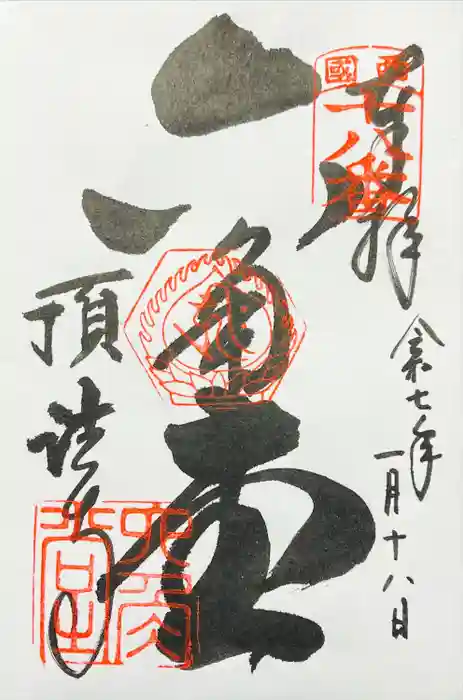 奉拝
西國
十八番
令和七年
一月十八日
六角堂
頂法寺
六角
堂